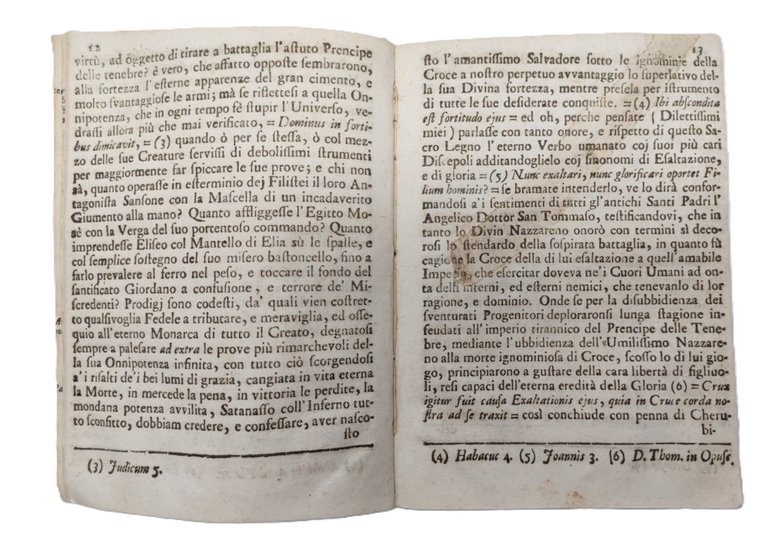 12
virtù, ad oggetto di tirare a battaglia l'aſtuto Prencipe
delle tenebre? è vero, che affatto oppoſte ſembrarono,
alla fortezza l'eſterne apparenze del gran cimento, e
molto ſvantaggioſe le armi; mà ſe riflettesſi a quella On-
nipotenza, che in ogni tempo fè ſtupir l'Univerſo, ve-
draſſi allora più che mai verificato, = Dominus in forti-
bus dimicavit, = (3) quando ò per ſe ſteſſa, ò col mez-
zo delle ſue Creature ſerviſſi di deboliſſimi ſtrumenti
per maggiormente far ſpiccare le ſue prove; e chi non
sà, quanto operaſſe in eſterminio dej Filiſtei il loro An-
tagoniſta Sanſone con la Maſcella di un incadaverito
Giumento alla mano? Quanto affliggeſſe l'Egitto Mo-
sè con la Verga del ſuo portentoſo commando? Quanto
imprendeſſe Eliſeo col Mantello di Elia sù le ſpalle, e
col ſemplice ſoſtegno del ſuo miſero baſtoncello, fino a
farlo prevalere al ferro nel peſo, e toccare il fondo del
ſantificato Giordano a confuſione, e terrore de' Miſ-
credenti? Prodigj ſono codeſti, da' quali vien coſtret-
to qualſivoglia Fedele a tributare, e meraviglia, ed oſſe-
quio all'eterno Monarca di tutto il Creato, degnatoſi
ſempre a paleſare ad extra le prove più rimarchevoli del-
la ſua Onnipotenza infinita, con tutto ciò ſcorgendoſi
a'i riſalti de'i bei lumi di grazia, cangiata in vita eterna
la Morte, in mercede la pena, in vittoria le perdite, la
mondana potenza avvilita, Satanaſſo coll'Inferno tut-
to ſconfitto, dobbiam credere, e confeſſare, aver naſco-
ſto
(3) Judicum 5.
13
ſto l'amantiſſimo Salvadore ſotto le ignominie della
Croce a noſtro perpetuo avvantaggio lo ſuperlativo del-
la ſua Divina fortezza, mentre preſela per iſtrumento
di tutte le ſue deſiderate conquiſte. = (4) Ibi abſcondita
eſt fortitudo ejus = ed oh, perche penſate (Dilettiſſimi
miei) parlaſſe con tanto onore, e riſpetto di queſto Sa-
cro Legno l'eterno Verbo umanato coj ſuoi più cari
Diſcepoli additandoglielo coj ſinonomi di Eſaltazione,
e di gloria = (5) Nunc exaltari, nunc glorificari oportet Fi-
lium hominis? = ſe bramate intenderlo, ve lo dirà confor-
mandoſi a'i ſentimenti di tutti gl'antichi Santi Padri l'
Angelico Dottor San Tommaſo, teſtificandovi, che in
tanto lo Divin Nazzareno onorò con termini sì deco-
roſi lo ſtendardo della ſoſpirata battaglia, in quanto fù
cagione la Croce della di lui eſaltazione a quell'amabile
Impero, che eſercitar doveva ne'i Cuori Umani ad on-
ta delli interni, ed eſterni nemici, che tenevanlo di lor
ragione, e dominio. Onde ſe per la diſubbidienza dei
ſventurati Progenitori deploraronſi lunga ſtagione in-
feudati all'imperio tirannico del Prencipe delle Tene-
bre, mediante l'ubbidienza dell'Umiliſſimo Nazzare-
no alla morte ignominioſa di Croce, ſcoſſo lo di lui gio-
go, principiarono a guſtare della cara libertà di figliuo-
li, reſi capaci dell'eterna eredità della Gloria (6) = Crux
igitur fuit cauſa Exaltationis ejus, quia in Cruce corda no-
ſtra ad ſe traxit = così conchiude con penna di Cheru-
bi-
(4) Habacuc 4. (5) Joannis 3. (6) D. Thom. in Opuſc.